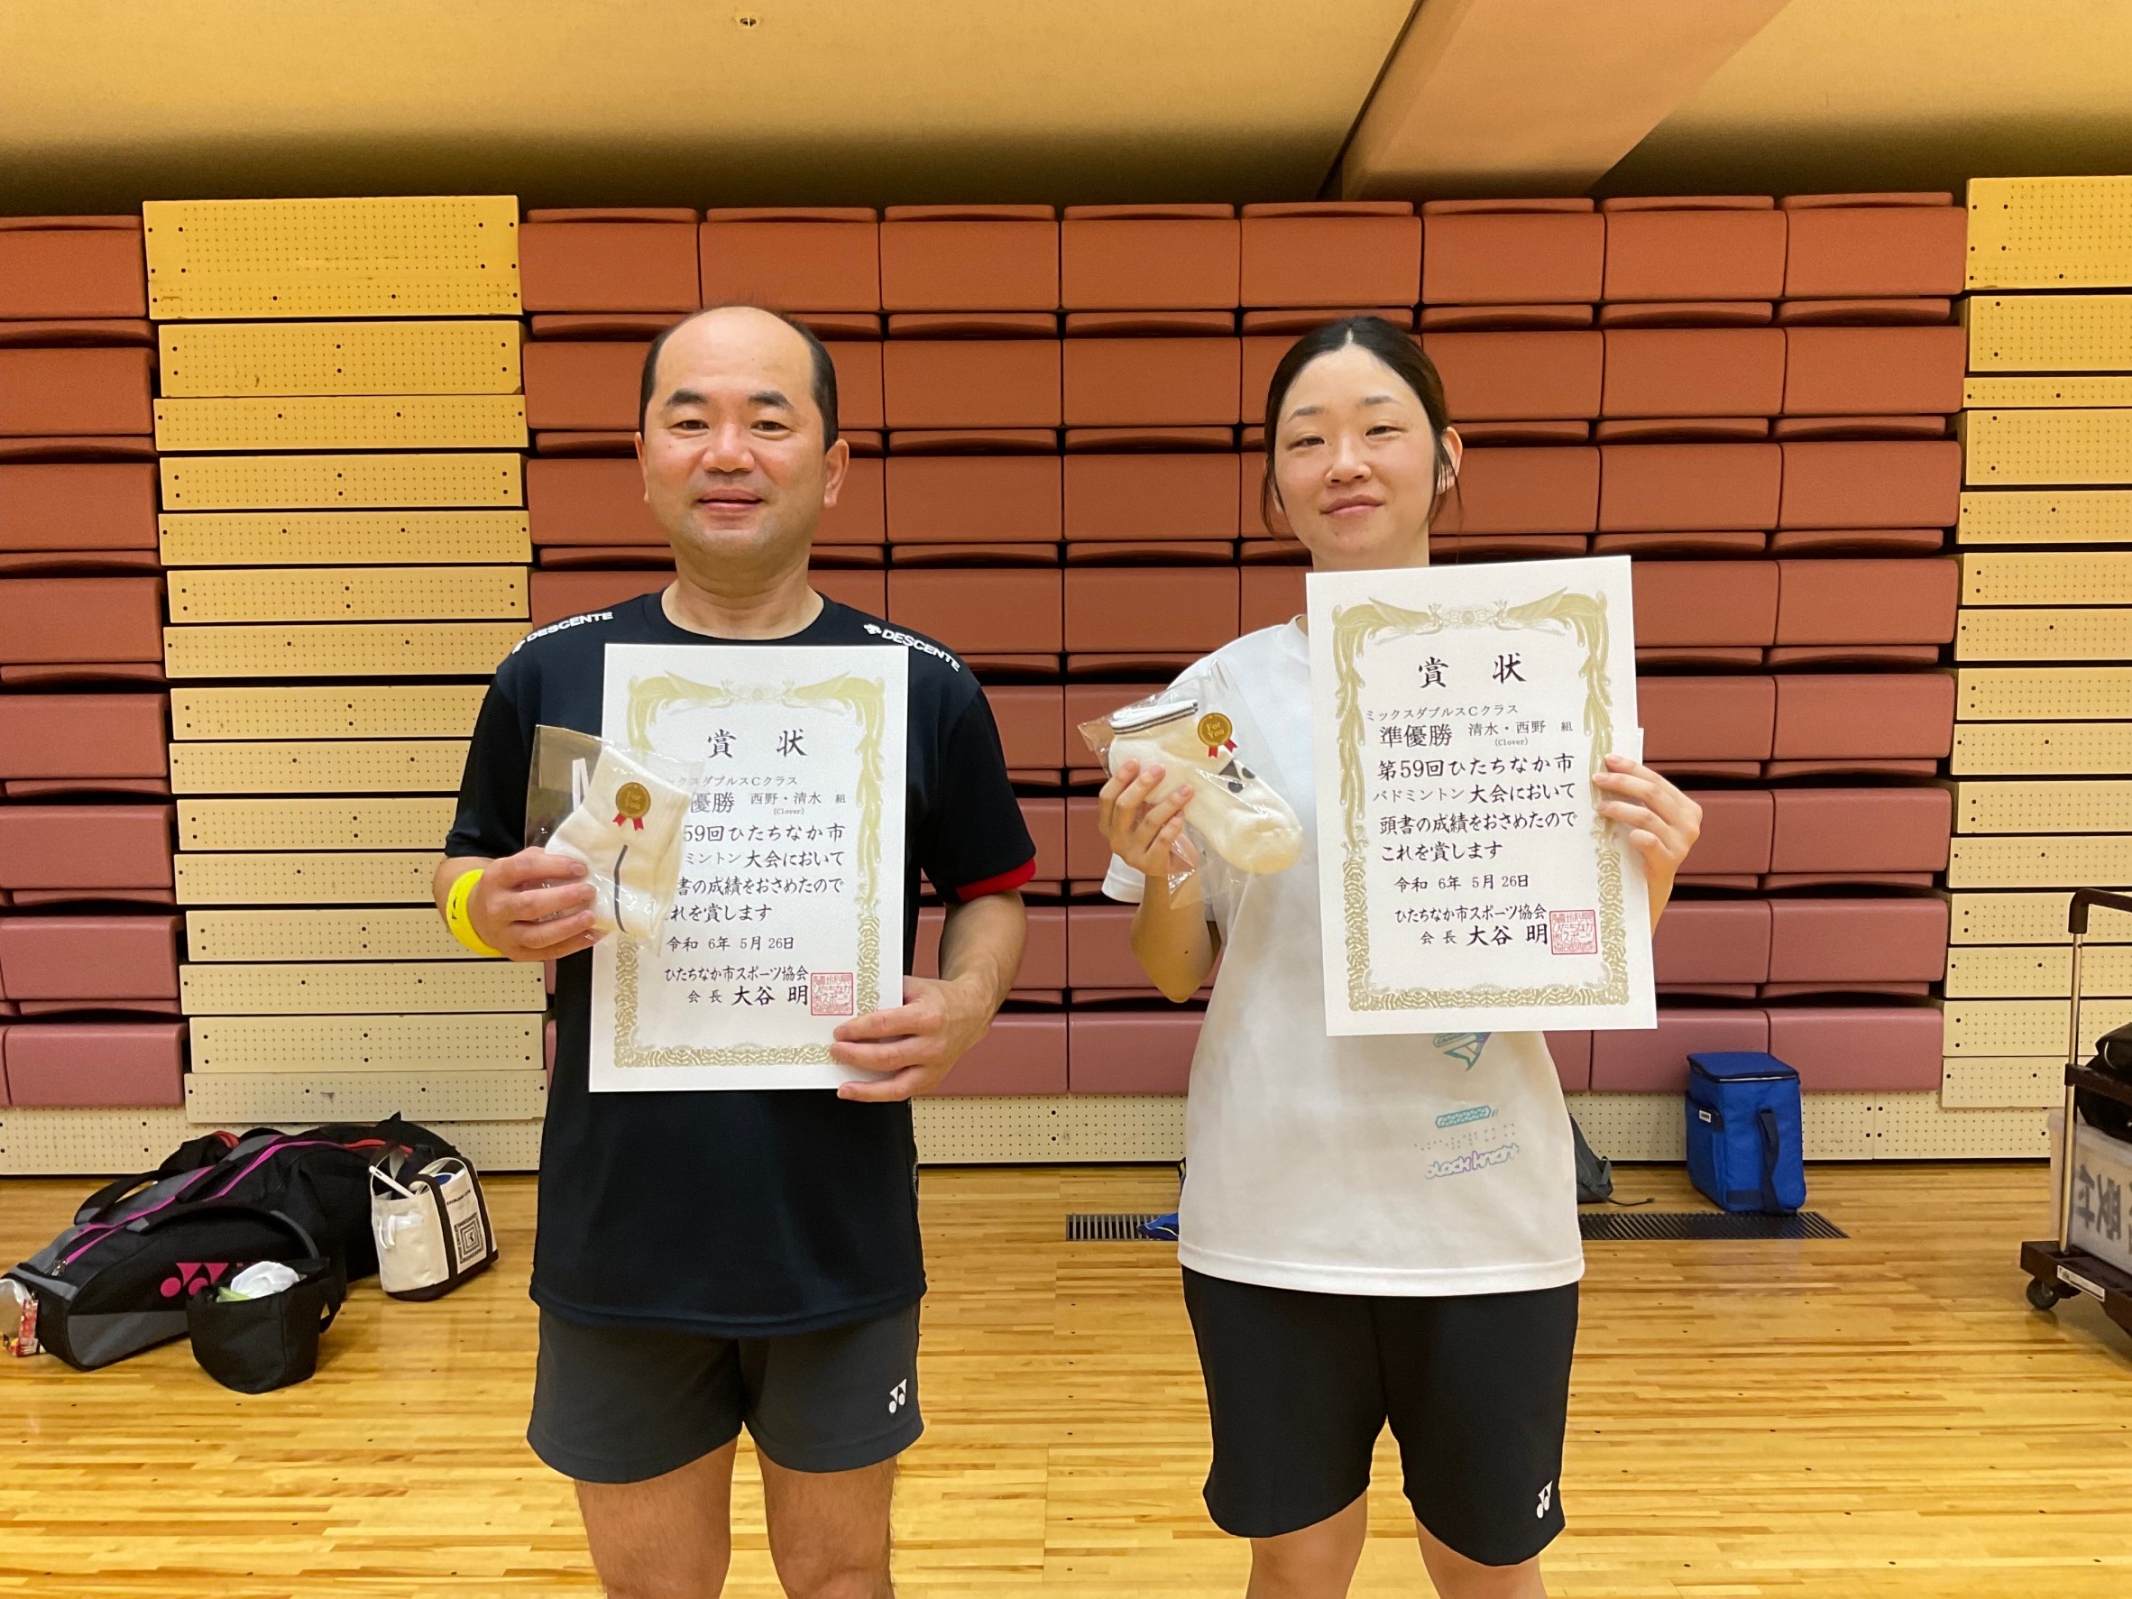 DESCENTE
DESCENTE
賞 状
ックスダブルスCクラス
優勝 西野・清水 組
(Clover)
59回ひたちなか市
ミントン大会において
書の成績をおさめたので
れを賞します
令和 6年 5月 26日
ひたちなか市スポーツ協会
会 長 大谷 明
For
You
賞 状
ミックスダブルスCクラス
準優勝 清水・西野 組
(Clover)
第59回ひたちなか市
バドミントン大会において
頭書の成績をおさめたので
これを賞します
令和 6年 5月 26日
ひたちなか市スポーツ協会
会 長 大谷 明
For
You
black knight